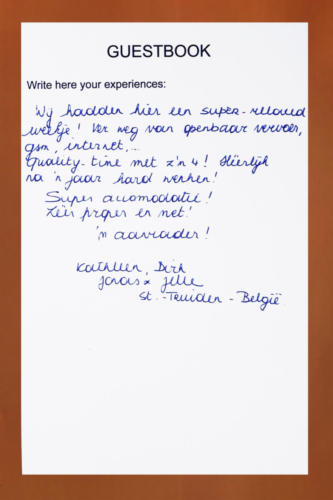 GUESTBOOK
Write here your experiences:
Wij hadden hier een super-relaxed
weekje! Ver weg van openbaar vervoer,
gsm, internet,...
Quality-time met z'n 4! Heerlijk
na 'n jaar hard werken!
Super accomodatie!
Zéér proper en net!
'n aanrader!
Kathleen, Dirk
Joras x Jelle
St.-Truiden - België